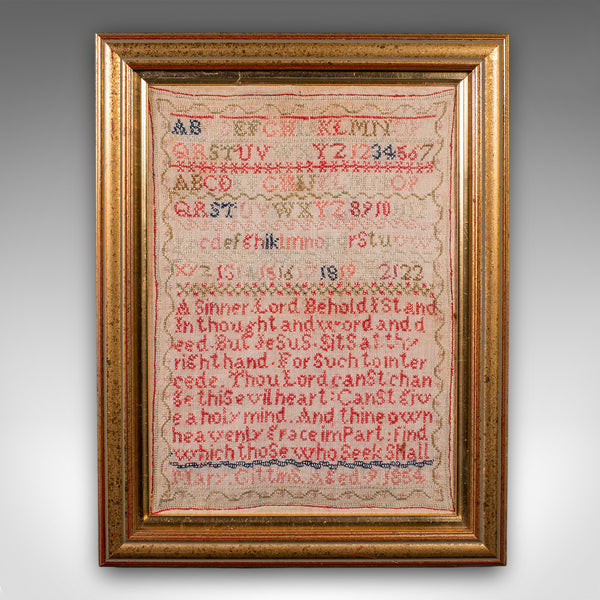 AB EFGHI KLMN
QRSTUV YZ 1234567
ABCD OP
QRSTUVWXYZ 8910
cdefghiklmnopqrstu
xyz 15 16 18 19 21 22
A Sinner Lord Behold I Stand
In thought and word and d
eed. But JeSuS. SitS at thy
right hand. For Such to inter
cede. Thou Lord canSt chan
ge thiS evil heart: CanSt giv
e a holy mind. And thine own
heavenly grace imPart: Find
which thoSe who Seek Shall
Mary Aged 9 1854